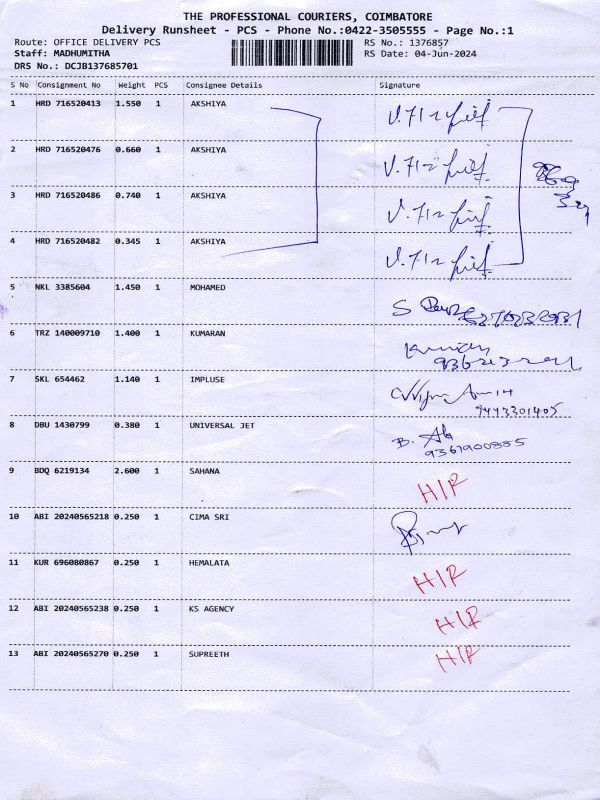 THE PROFESSIONAL COURIERS, COIMBATORE
Delivery Runsheet - PCS - Phone No.:0422-3505555 - Page No.:1
Route: OFFICE DELIVERY PCS RS No.: 1376857
Staff: MADHUMITHA RS Date: 04-Jun-2024
DRS No.: DCJB137685701
S No Consignment No Weight PCS Consignee Details Signature
1 HRD 716520413 1.550 1 AKSHIYA
2 HRD 716520476 0.660 1 AKSHIYA
3 HRD 716520486 0.740 1 AKSHIYA
4 HRD 716520482 0.345 1 AKSHIYA
5 NKL 3385604 1.450 1 MOHAMED
6 TRZ 140009710 1.400 1 KUMARAN
7 SKL 654462 1.140 1 IMPLUSE
9443301405
8 DBU 1430799 0.380 1 UNIVERSAL JET
9 BDQ 6219134 2.600 1 SAHANA HIR
10 ABI 20240565218 0.250 1 CIMA SRI
11 KUR 696080867 0.250 1 HEMALATA HIR
12 ABI 20240565238 0.250 1 KS AGENCY HIR
13 ABI 20240565270 0.250 1 SUPREETH HIR